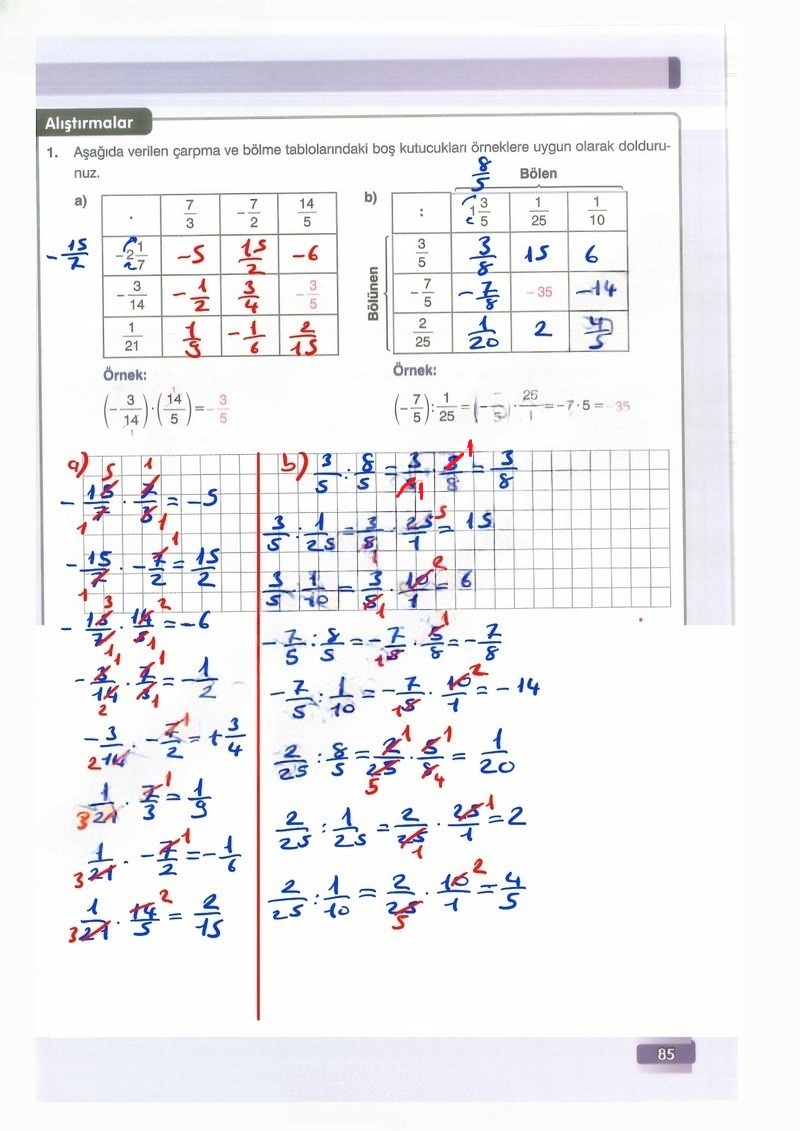 Alıştırmalar
1. Aşağıda verilen çarpma ve bölme tablolarındaki boş kutucukları örneklere uygun olarak dolduru-
nuz.
8/5
Bölen
a)
. 7/3 -7/2 14/5
-15/7 -2 1/7 -5 15/2 -6
-3/14 -1/2 3/4 -3/5
1/21 1/9 -1/6 2/15
b)
: 1 3/5 1/25 1/10
Bölünen
3/5 3/8 15 6
-7/5 -7/8 -35 -14
2/25 1/20 2 4/5
Örnek:
(-3/14)·(14/5) = -3/5
Örnek:
(-7/5):1/25 = (-7/5)·25/1 = -7·5 = -35
a)
-15/7 · 7/3 = -5
-15/7 · -7/2 = 15/2
-15/7 · 14/5 = -6
-3/14 · 7/3 = -1/2
-3/14 · -7/2 = +3/4
1/21 · 7/3 = 1/9
1/21 · -7/2 = -1/6
1/21 · 14/5 = 2/15
b)
3/5 : 8/5 = 3/5 · 5/8 = 3/8
3/5 : 1/25 = 3/5 · 25/1 = 15
3/5 : 1/10 = 3/5 · 10/1 = 6
-7/5 : 8/5 = -7/5 · 5/8 = -7/8
-7/5 : 1/10 = -7/5 · 10/1 = -14
2/25 : 8/5 = 2/25 · 5/8 = 1/20
2/25 : 1/25 = 2/25 · 25/1 = 2
2/25 : 1/10 = 2/25 · 10/1 = 4/5
85